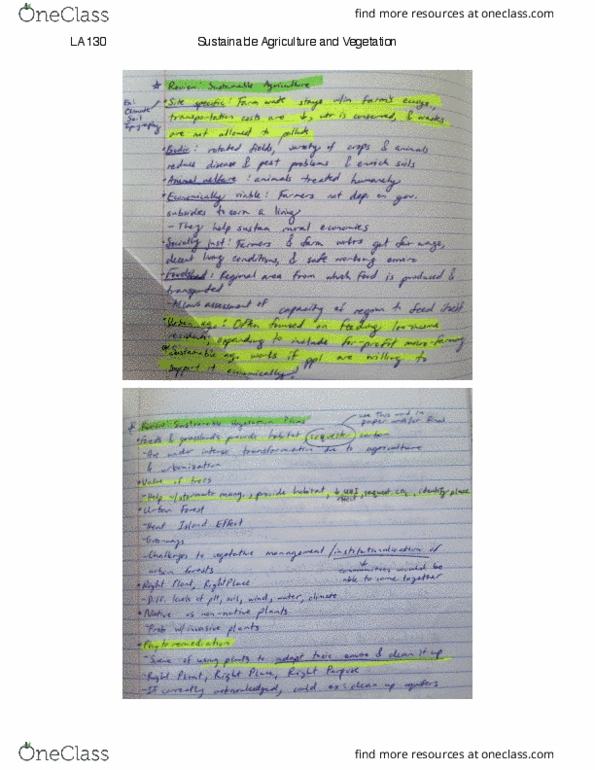 OneClass
find more resources at oneclass.com
LA 130 Sustainable Agriculture and Vegetation
Review: Sustainable Agriculture
Ex:
Climate
Soil
Topography
• Site specific: Farm waste stays w/in farm's ecosys,
transportation costs are ↓, wtr is conserved, & wastes
are not allowed to pollute
: rotated fields, variety of crops & animals
reduce disease & pest problems & enrich soils
• Animal welfare: animals treated humanely
• Economically viable: Farmers not dep. on gov.
subsidies to earn a living
- They help sustain rural economies
• Socially just: Farmers & farm wrkrs get fair wage,
decent living conditions, & safe working enviro
• Foodshed: Regional area from which food is produced &
transported
- Allows assessment of capacity of region to feed itself
• Urban ag.: Often focused on feeding low-income
residents, expanding to include for-profit micro-farming
sustainable ag. works if ppl are willing to
support it economically!
Review: Sustainable Vegetation
use this word in
paper and/or final
• & grasslands provide habitat, sequester carbon
- Are under intense transformation due to agriculture
& urbanization
• Value of trees
- Help w/ stormwater mang., provide habitat, ↓ UHI effect, sequest. CO2, identify place
• Urban Forest
- Heat Island Effect
- Greenways
- Challenges to vegetative management / institutionalization of
urban forests
communities wouldn't be
able to come together
• Right Plant, Right Place
- Diff. levels of pH, soils, wind, water, climate
• Native vs non-native plants
- Prob w/ invasive plants
• Phytoremediation
- Science of using plants to adapt toxic enviro & clean it up
- Right Plant, Right Place, Right Purpose
- If currently acknowledged, could ex: clean up aquifers
OneClass
find more resources at oneclass.com